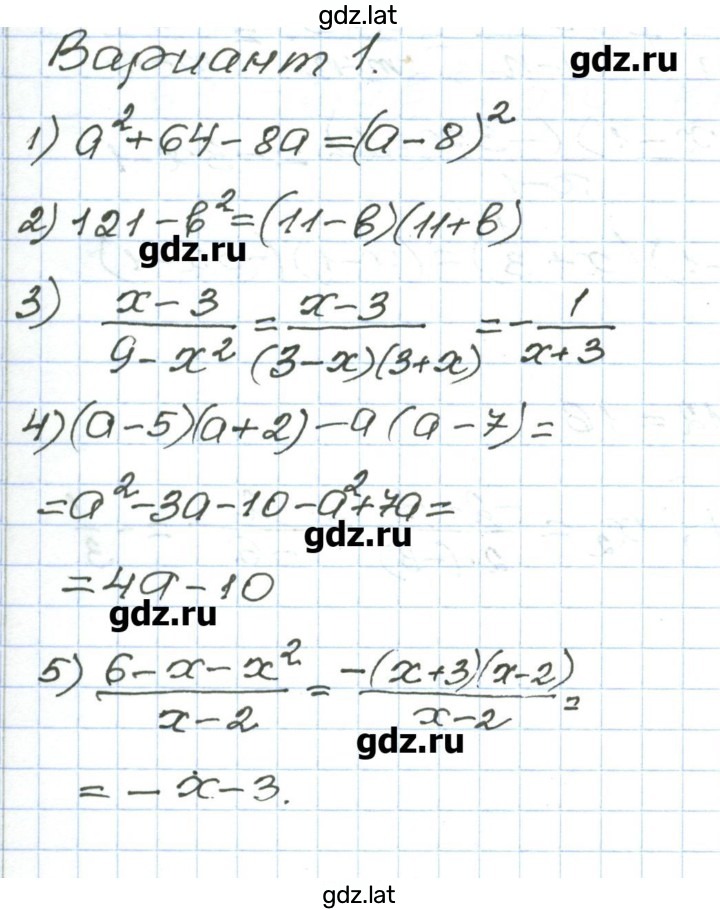 gdz.lat
Вариант 1.
gdz.ru
1) a²+64-8a=(a-8)²
2) 121-b²=(11-b)(11+b)
gdz.ru
3) (x-3)/(9-x²) = (x-3)/((3-x)(3+x)) = -1/(x+3)
4) (a-5)(a+2)-a(a-7)=
=a²-3a-10-a²+7a=
gdz.ru
=4a-10
gdz.ru
5) (6-x-x²)/(x-2) = (-(x+3)(x-2))/(x-2) =
gdz.ru
= -x-3.
gdz.lat